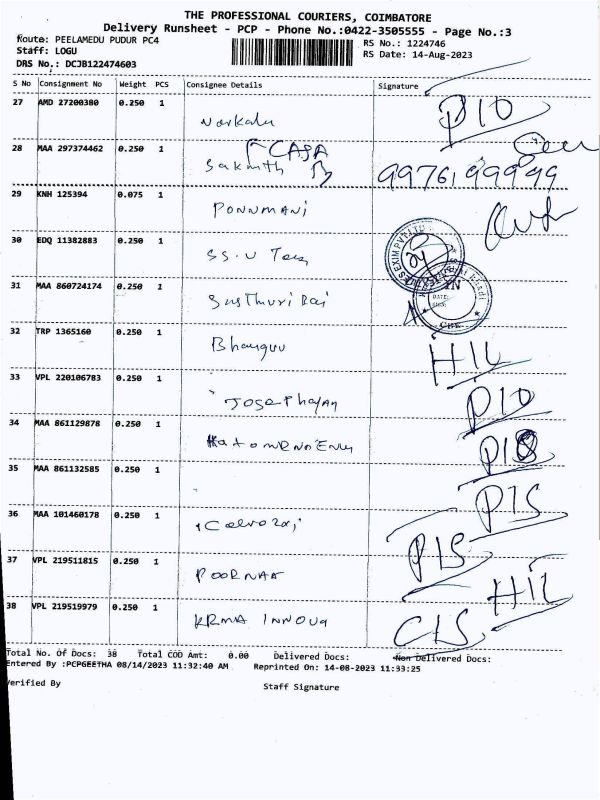 THE PROFESSIONAL COURIERS, COIMBATORE
Delivery Runsheet - PCP - Phone No.:0422-3505555 - Page No.:3
Route: PEELAMEDU PUDUR PC4 RS No.: 1224746
Staff: LOGU RS Date: 14-Aug-2023
DRS No.: DCJB122474603
S No Consignment No Weight PCS Consignee Details Signature
27 AMD 27200380 0.250 1
28 MAA 297374462 0.250 1 9976199999
29 KNH 125394 0.075 1 PONNMANI
30 EDQ 11382883 0.250 1
31 MAA 860724174 0.250 1
32 TRP 1365160 0.250 1 HIL
33 VPL 220106783 0.250 1 PIO
34 MAA 861129878 0.250 1
35 MAA 861132585 0.250 1 PIS
36 MAA 101460178 0.250 1 PIS
37 VPL 219511815 0.250 1 POORNAA HIL
38 VPL 219519979 0.250 1 KRMA INNOVA CIS
Total No. Of Docs: 38 Total COD Amt: 0.00 Delivered Docs: Non Delivered Docs:
Entered By :PCPGEETHA 08/14/2023 11:32:40 AM Reprinted On: 14-08-2023 11:33:25
Verified By Staff Signature